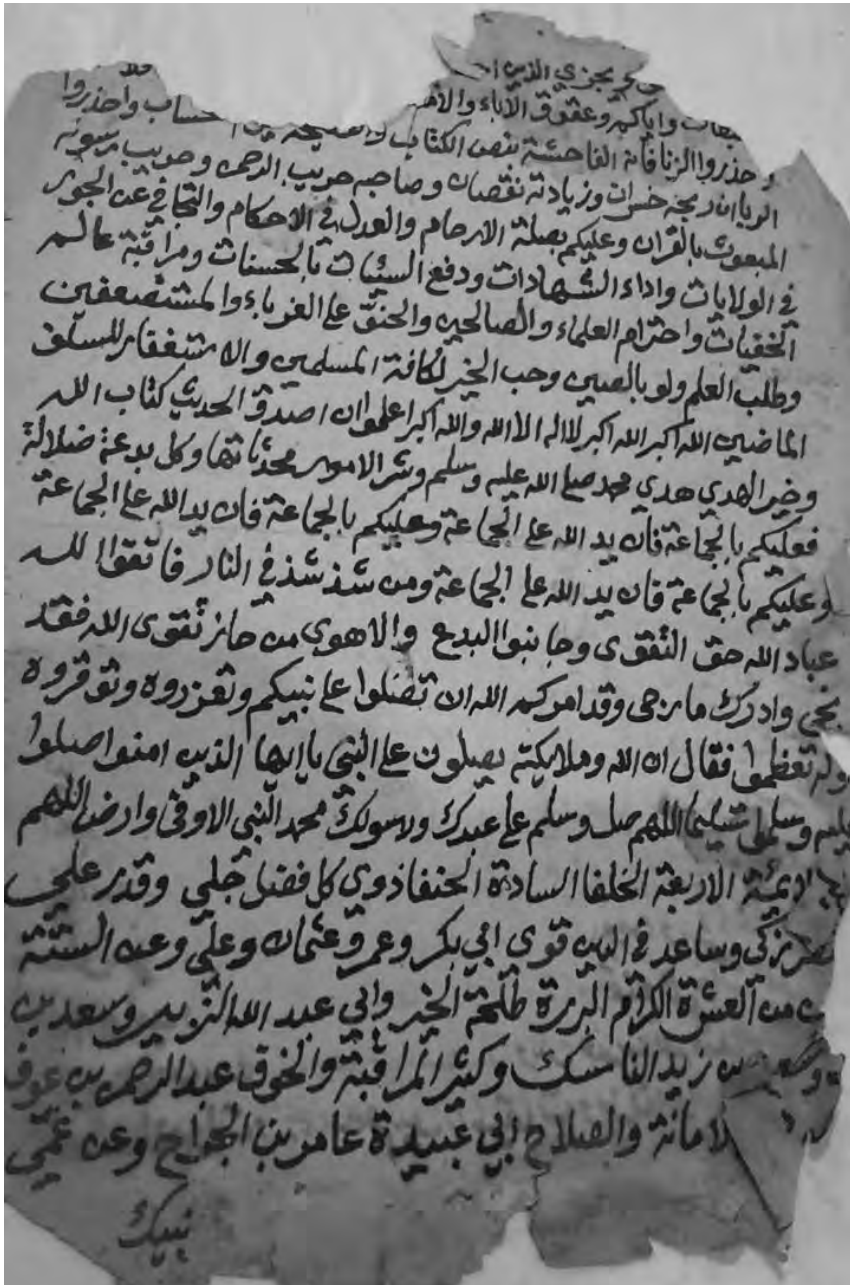 يجزي الذين ا
واياكم وعقوق الاباء والامه
وحذروا الزنا فانه الفاحشة بنص الكتاب الحساب واحذروا
الربا ان ربحه خسران وزيادته نقصان وصاحبه حريب الرحمن وحريب رسوله
المبعوث بالقران وعليكم بصلة الارحام والعدل في الاحكام والتجافي عن الجور
في الولايات واداء الشهادات ودفع السيئات بالحسنات ومراقبة عالم
الخفيات واحترام العلماء والصالحين والحنو على الغرباء والمستضعفين
وطلب العلم ولو بالصين وحب الخير لكافة المسلمين والاستغفار للسلف
الماضين الله اكبر الله اكبر لا اله الا الله والله اكبر اعلموا ان اصدق الحديث كتاب الله
وخير الهدي هدي محمد صلى الله عليه وسلم وشر الامور محدثاتها وكل بدعة ضلالة
فعليكم بالجماعة فان يد الله على الجماعة وعليكم بالجماعة فان يد الله على الجماعة
وعليكم بالجماعة فان يد الله على الجماعة ومن شذ شذ في النار فاتقوا الله
عباد الله حق التقوى وجانبوا البدع والاهوى من حاز تقوى الله فقد
نجي وادرك ما رجى وقد امركم الله ان تصلوا على نبيكم وتعزروه وتوقروه
وله تعظموا فقال ان الله وملايكته يصلون على النبي ياايها الذين امنوا صلوا
عليه وسلموا تسليما اللهم صل وسلم على عبدك ورسولك محمد النبي الاوفى وارض اللهم
الايمة الاربعة الخلفا السادة الحنفا ذوي كل فضل جلي وقدر علي
زكي وساعد في الدين قوي ابي بكر وعمر وعثمان وعلي وعن الستة
من العشرة الكرام البررة طلحة الخير وابي عبد الله الزبير وسعد بن
بن زيد الناسك وكثير المراقبة والخوف عبد الرحمن بن عوف
الامانة والصلاح ابي عبيدة عامر بن الجراح وعن عمي
نبيك